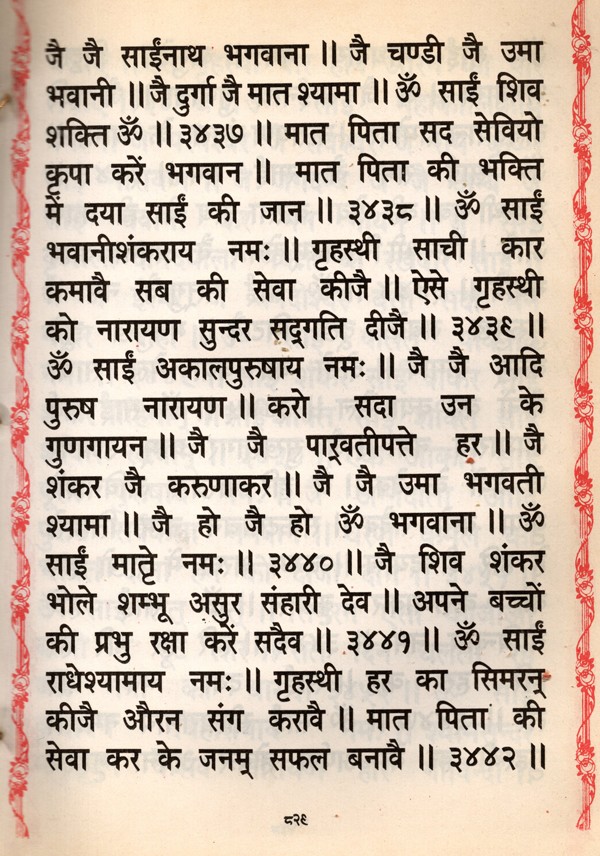 जै जै साईंनाथ भगवाना ॥ जै चण्डी जै उमा
भवानी ॥ जै दुर्गा जै मात श्यामा ॥ ॐ साईं शिव
शक्ति ॐ ॥ ३४३७ ॥ मात पिता सद सेवियो
कृपा करें भगवान ॥ मात पिता की भक्ति
में दया साईं की जान ॥ ३४३८ ॥ ॐ साईं
भवानीशंकराय नमः ॥ गृहस्थी साची कार
कमावै सब की सेवा कीजै ॥ ऐसे गृहस्थी
को नारायण सुन्दर सद्गति दीजै ॥ ३४३९ ॥
ॐ साईं अकालपुरुषाय नमः ॥ जै जै आदि
पुरुष नारायण ॥ करो सदा उन के
गुणगायन ॥ जै जै पार्वतीपत्ते हर ॥ जै
शंकर जै करुणाकर ॥ जै जै उमा भगवती
श्यामा ॥ जै हो जै हो ॐ भगवाना ॥ ॐ
साईं मातृे नमः ॥ ३४४० ॥ जै शिव शंकर
भोले शम्भू असुर संहारी देव ॥ अपने बच्चों
की प्रभु रक्षा करें सदैव ॥ ३४४१ ॥ ॐ साईं
राधेश्यामाय नमः ॥ गृहस्थी हर का सिमरन्
कीजै औरन संग करावै ॥ मात पिता की
सेवा कर के जनम् सफल बनावै ॥ ३४४२ ॥
८२९